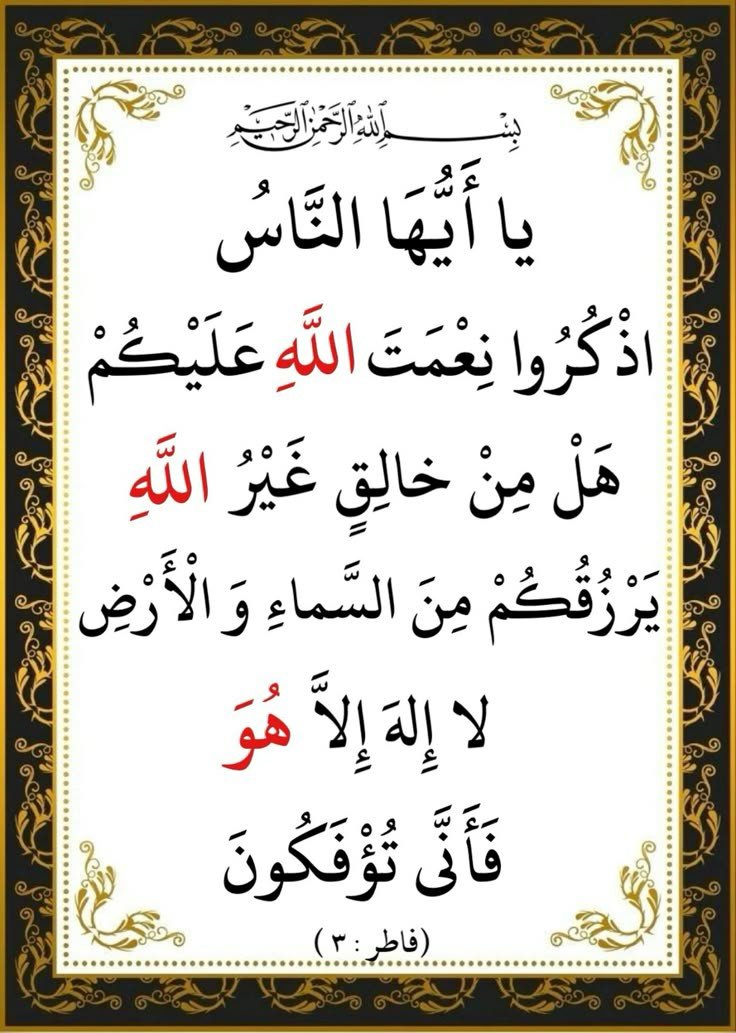 بِسْمِ اللهِ الرَّحْمٰنِ الرَّحِيْمِ
يا أَيُّهَا النَّاسُ
اذْكُرُوا نِعْمَتَ اللَّهِ عَلَيْكُمْ
هَلْ مِنْ خالِقٍ غَيْرُ اللَّهِ
يَرْزُقُكُمْ مِنَ السَّماءِ وَ الْأَرْضِ
لا إِلهَ إِلاَّ هُوَ
فَأَنَّى تُؤْفَكُونَ
(فاطر : ٣)